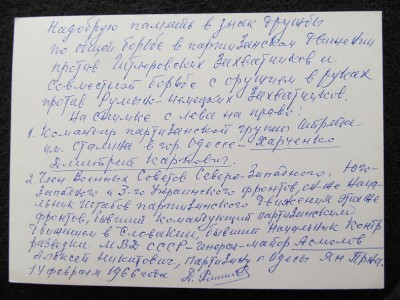 На добрую память в знак дружбы
по общей борьбе в партизанском движении
против Гитлеровских захватчиков и
совместной борьбе с оружием в руках
против Румыно-немецких захватчиков.
На снимке с лева на право:
1. Командир партизанской группы
им. Сталина в гор Одессе - Харченко
Дмитрий Карпович.
2. Член Военных Советов Северо-Западного, Юго-
Западного и 3-го Украинского фронтов, он же Началь-
ник штабов партизанского движения этих же
фронтов, бывший командующий партизанским
движением в Словакии, бывший Начальник Контр
разведки МВД СССР - Генерал-майор Асмолов
Алексей Никитович, партизану г Одессы
14 февраля 1966 года